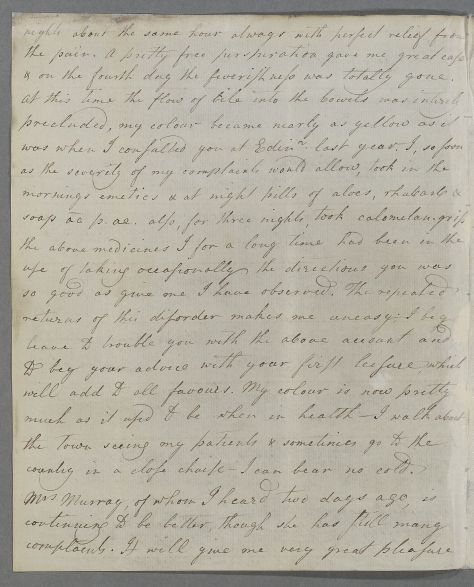 nights about the same hour always with perfect relief from
the pain. A pretty free perspiration gave me great ease
& on the fourth day the feverishness was totally gone.
At this time the flow of bile into the bowels was intirely
precluded, my colour became nearly as yellow as it
was when I consulted you at Edinr. last year. I, so soon
as the severity of my complaints would allow, took in the
mornings emetics & at night pills of aloes, rhubarb &
soap āā p. ae. also, for three nights took calomelan. gr
the above medicines I for a long time had been in the
use of taking occasionally the directions you was
so good as give me I have observed. The repeated
returns of this disorder makes me uneasy. I beg
leave to trouble you with the above account and
to beg your advice with your first leisure which
will add to all favours. My colour is now pretty
much as it used to be when in health – I walk about
the town seeing my patients & sometimes go to the
country in a close chaise – I can bear no cold.
Mrs Murray, of whom I heard two days ago, is
continuing to be better, though she has still many
complaints. It will give me very great pleasure